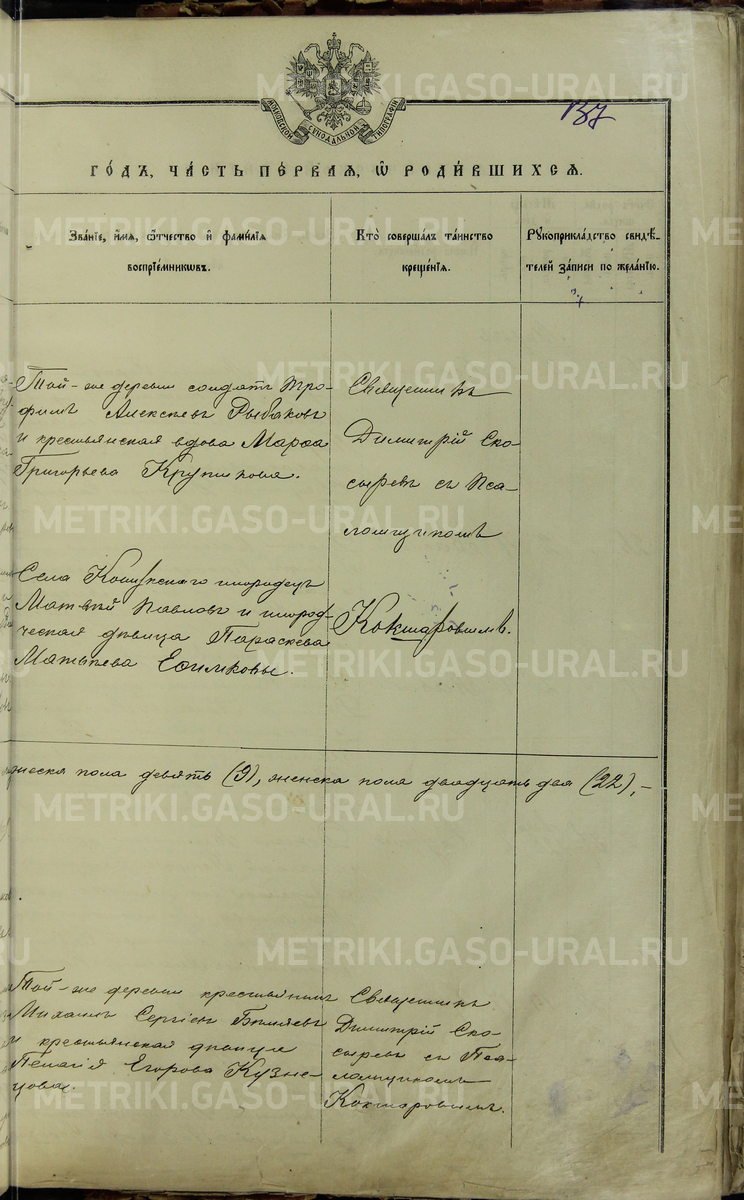 МОСКОВСКОЙ СУНОДАЛЬНОЙ ТИПОГРАФІИ
137
ГО́ДЪ, ЧА́СТЬ ПЕ́РВАЯ, Ѿ РОДИ́ВШИХСЯ.
Зва́нїе, и́мя, о́тчество и фами́лїя
воспрїе́мниковъ.
Кто̀ совершалъ та́инство
креще́нїя.
Рукоприкла́дство свидѣ́-
телей за́писи по жела́нїю.
Той-же деревни солдатъ Тро-
фимъ Алексѣевъ Рыбаковъ
и крестьянская вдова Марѳа
Григорьева Крупина.
Священникъ
Димитрій Ско-
сыревъ съ Пса-
ломщикомъ
Кокшаровымъ.
Села инородецъ
Матвѣй Павловъ и инород-
ческая дѣвица Параскева
Матвѣева Есимковы.
мужеска пола девять (9), женска пола двадцать два (22),-
Той-же деревни крестьянинъ
Михаилъ Сергіевъ Бѣляевъ
и крестьянская дѣвица
Пелагія Егорова Кузне-
цова.
Священникъ
Димитрій Ско-
сыревъ съ Пса-
ломщикомъ
Кокшаровымъ.
METRIKI.GASO-URAL.RU